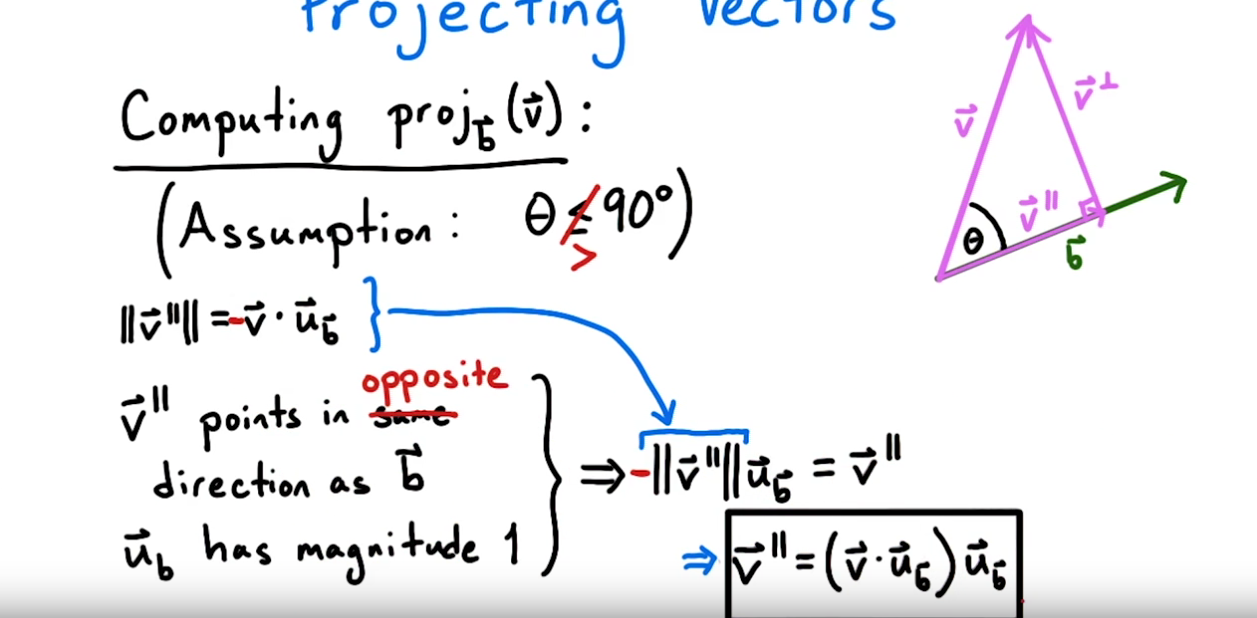 Projecting Vectors
Computing proj_b⃗ (v⃗) :
(Assumption : θ ≤ 90°)
>
‖v⃗^∥‖ = -v⃗ · u⃗_b⃗
opposite
v⃗^∥ points in same
direction as b⃗
u⃗_b has magnitude 1
⇒ -‖v⃗^∥‖ u⃗_b⃗ = v⃗^∥
⇒ v⃗^∥ = (v⃗ · u⃗_b⃗) u⃗_b⃗
v⃗
v⃗^⊥
v⃗^∥
θ
b⃗